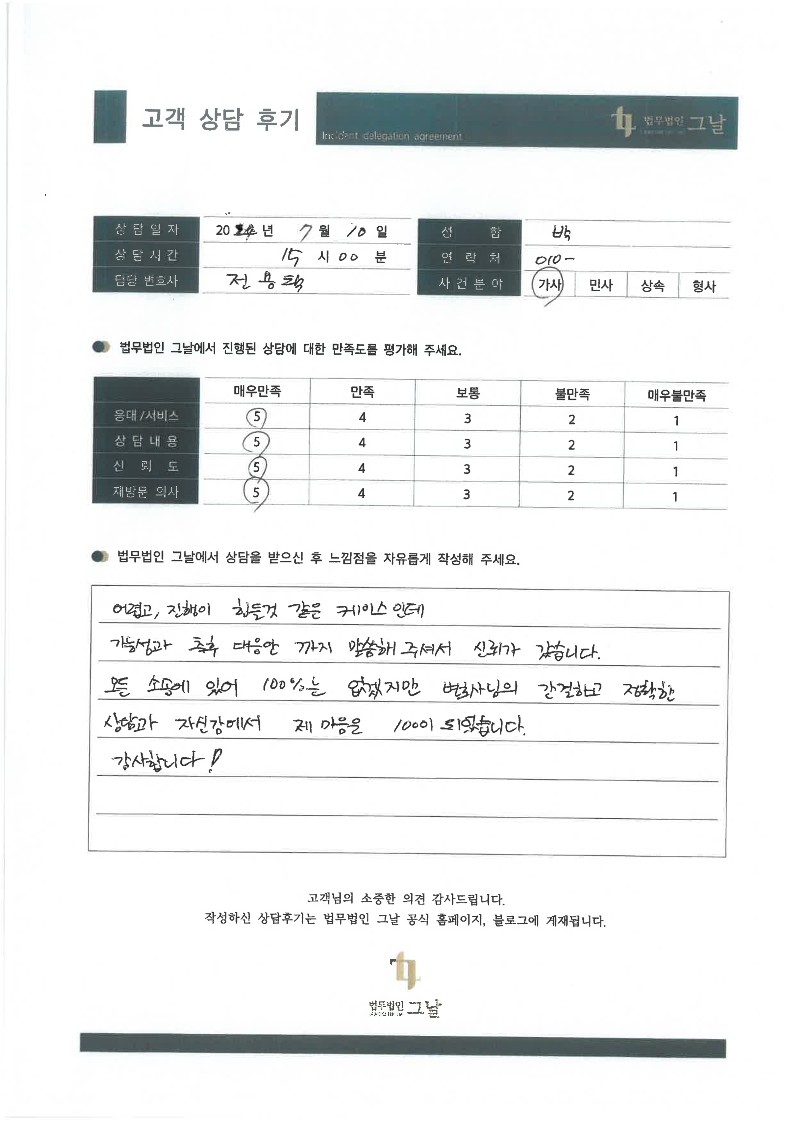 고객 상담 후기
Incident delegation agreement
법무법인 그날
상담일자 2024년 7월 10일 성 함 박
상담시간 15시 00 분 연락처 010-
담당 변호사 전용탁 사건분야 가사 민사 상속 형사
법무법인 그날에서 진행된 상담에 대한 만족도를 평가해 주세요.
매우만족 만족 보통 불만족 매우불만족
응대/서비스 5 4 3 2 1
상담내용 5 4 3 2 1
신뢰도 5 4 3 2 1
재방문 의사 5 4 3 2 1
법무법인 그날에서 상담을 받으신 후 느낌점을 자유롭게 작성해 주세요.
어렵고, 진행이 힘들것 같은 케이스인데
가능성과 추후 대응안 까지 말씀해 주셔서 신뢰가 갔습니다.
모든 소송에 있어 100%는 없겠지만 변호사님의 간결하고 정확한
상담과 자신감에서 제 마음은 100이 되었습니다.
감사합니다!
고객님의 소중한 의견 감사드립니다.
작성하신 상담후기는 법무법인 그날 공식 홈페이지, 블로그에 게재됩니다.
법무법인 그날